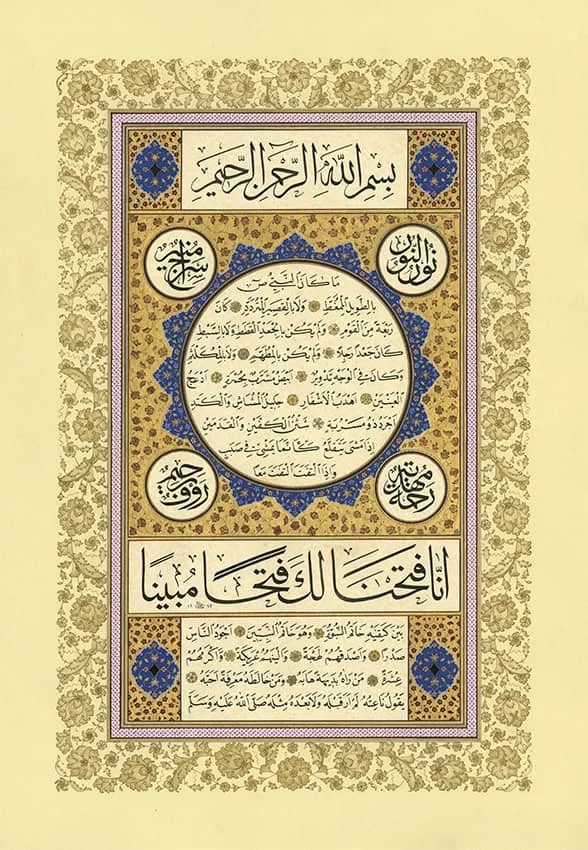 بِسْمِ اللّٰهِ الرَّحْمٰنِ الرَّحِيمِ
نور النور
سراج منير
مَا كَانَ النَّبِيُّ ص
بِالطَّوِيلِ الْمُمَّغِطِ وَلَا بِالْقَصِيرِ الْمُتَرَدِّدِ كَانَ
رَبْعَةً مِنَ الْقَوْمِ وَلَمْ يَكُنْ بِالْجَعْدِ الْقَطَطِ وَلَا بِالسَّبْطِ
كَانَ جَعْدًا رَجِلًا وَلَمْ يَكُنْ بِالْمُطَهَّمِ وَلَا بِالْمُكَلْثَمِ
وَكَانَ فِي الْوَجْهِ تَدْوِيرٌ اَبْيَضُ مُشْرَبٌ بِحُمْرَةٍ اَدْعَجُ
الْعَيْنَيْنِ اَهْدَبُ الْاَشْفَارِ جَلِيلُ الْمُشَاشِ وَالْكَتَدِ
اَجْرَدُ ذُو مَسْرُبَةٍ شَثْنُ الْكَفَّيْنِ وَالْقَدَمَيْنِ
اِذَا مَشَى تَقَلَّعَ كَاَنَّمَا يَمْشِي فِي صَبَبٍ
وَاِذَا الْتَفَتَ الْتَفَتَ مَعًا
رحمة مهداة
رؤوف رحيم
اِنَّا فَتَحْنَا لَكَ فَتْحًا مُبِينًا
بَيْنَ كَتِفَيْهِ خَاتَمُ النُّبُوَّةِ وَهُوَ خَاتَمُ النَّبِيِّينَ اَجْوَدُ النَّاسِ
صَدْرًا وَاَصْدَقُهُمْ لَهْجَةً وَاَلْيَنُهُمْ عَرِيكَةً وَاَكْرَمُهُمْ
عِشْرَةً مَنْ رَآهُ بَدِيهَةً هَابَهُ وَمَنْ خَالَطَهُ مَعْرِفَةً اَحَبَّهُ
يَقُولُ نَاعِتُهُ لَمْ اَرَ قَبْلَهُ وَلَا بَعْدَهُ مِثْلَهُ صَلَّى اللّٰهُ عَلَيْهِ وَسَلَّمَ